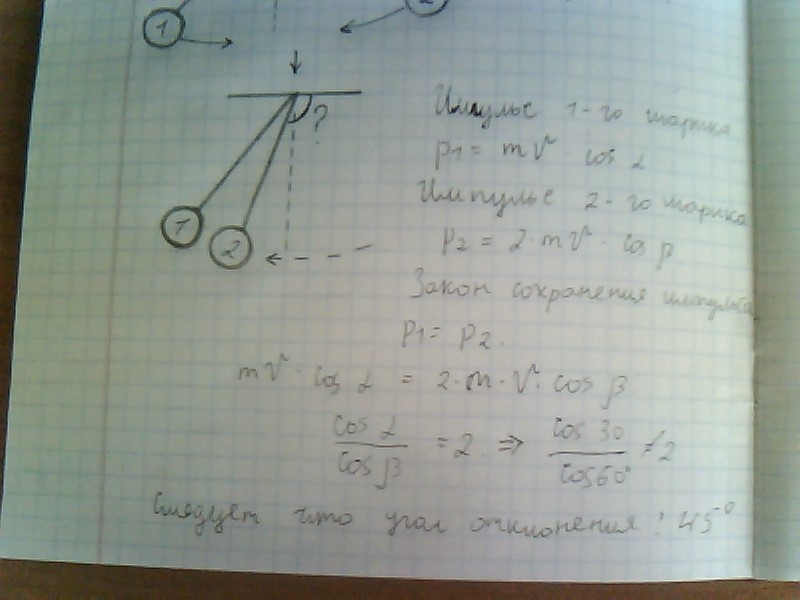 1 2
?
1 2
Импульс 1-го шарика
p1 = mV cos α
Импульс 2-го шарика
p2 = 2·mV · cos β
Закон сохранения импульса
p1 = p2.
mV · cos α = 2·m·V· cos β
cos α / cos β = 2 ⇒ cos 30 / cos60° ≠ 2
Следует что угол отклонения : 45°